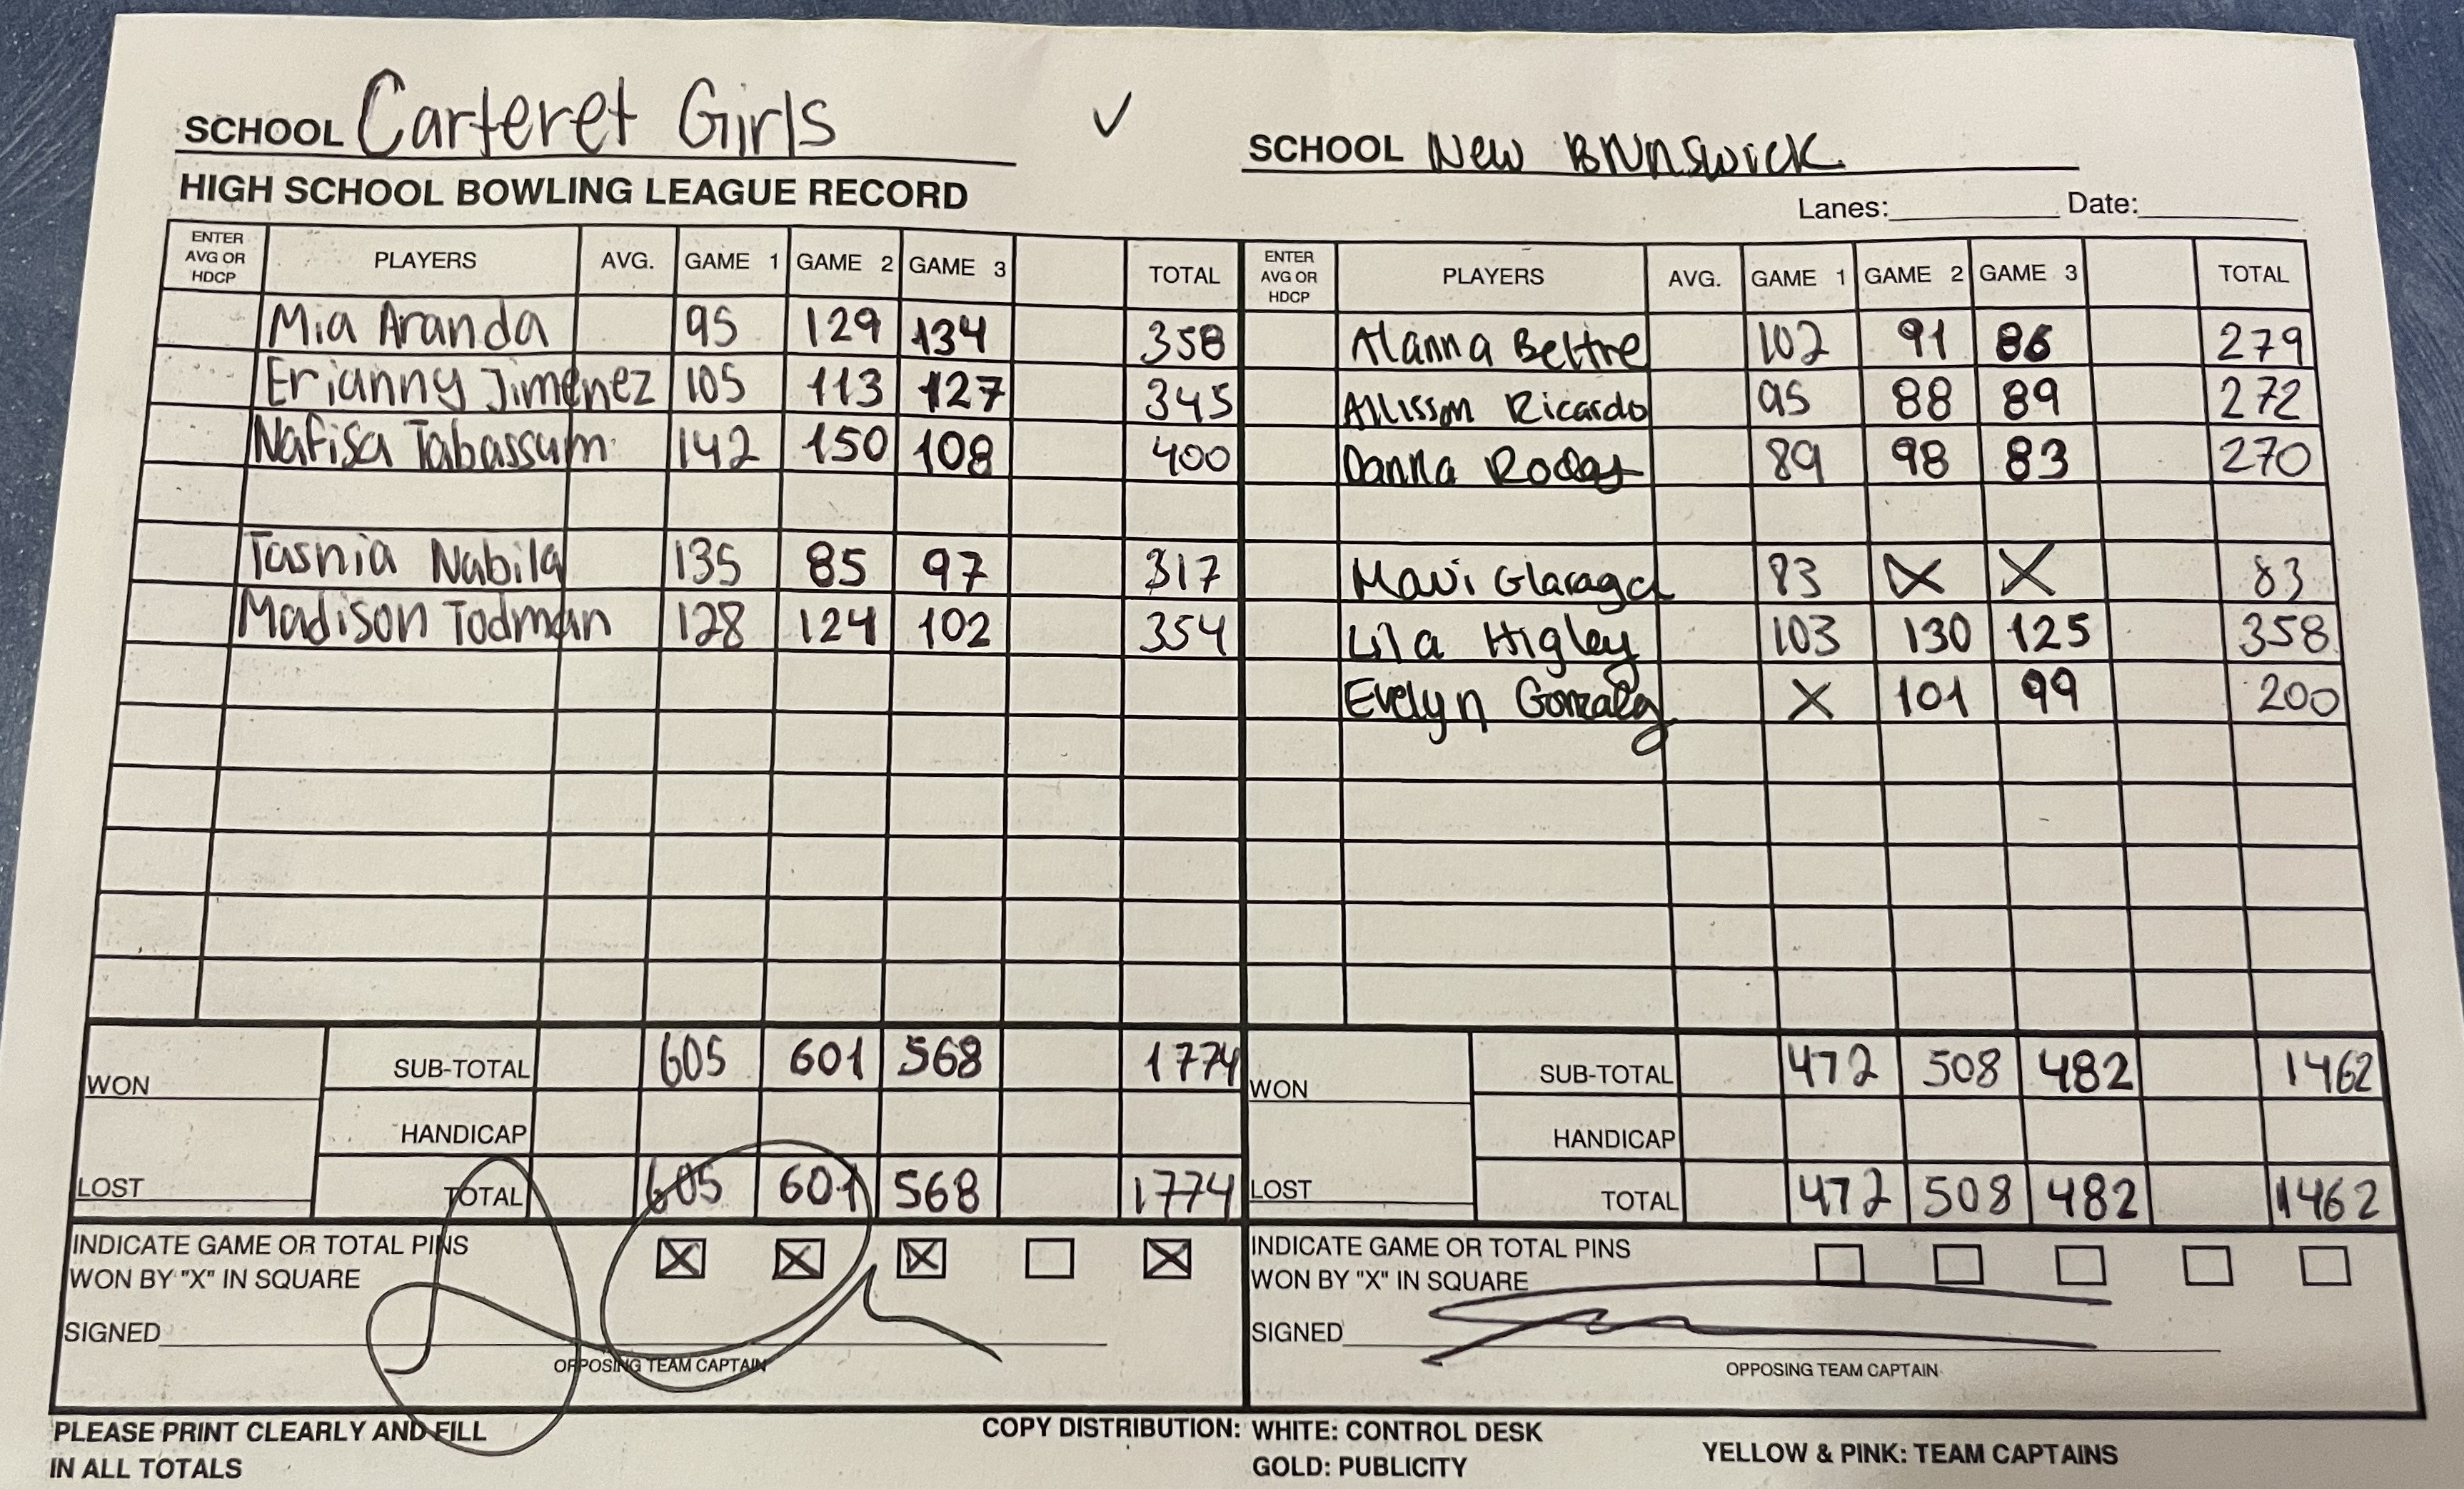 SCHOOL Carteret Girls ✓ SCHOOL New Brunswick
HIGH SCHOOL BOWLING LEAGUE RECORD
Lanes: Date:
ENTER AVG OR HDCP PLAYERS AVG. GAME 1 GAME 2 GAME 3 TOTAL ENTER AVG OR HDCP PLAYERS AVG. GAME 1 GAME 2 GAME 3 TOTAL
Mia Aranda 95 129 134 358 Alanna Beltre 102 91 86 279
Erianny Jimenez 105 113 127 345 Allisson Ricardo 95 88 89 272
Nafisa Tabassum 142 150 108 400 Danna 89 98 83 270
Tasnia Nabila 135 85 97 317 Mavi 83 X X 83
Madison Todman 128 124 102 354 Lila Higley 103 130 125 358
Evelyn X 101 99 200
WON SUB-TOTAL 605 601 568 1774 WON SUB-TOTAL 472 508 482 1462
HANDICAP HANDICAP
LOST TOTAL 605 601 568 1774 LOST TOTAL 472 508 482 1462
INDICATE GAME OR TOTAL PINS INDICATE GAME OR TOTAL PINS
WON BY "X" IN SQUARE X X X X WON BY "X" IN SQUARE
SIGNED SIGNED
OPPOSING TEAM CAPTAIN OPPOSING TEAM CAPTAIN
PLEASE PRINT CLEARLY AND FILL COPY DISTRIBUTION: WHITE: CONTROL DESK YELLOW & PINK: TEAM CAPTAINS
IN ALL TOTALS GOLD: PUBLICITY